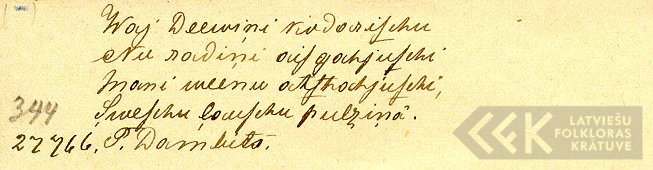 Waj Deewiņi ko darischu
Nu radiņi aisgahjuschi
Mani weenu atstahjuschi,
Sweschu lauschu pulziņâ.
344
27766. P. Dambits.
LATVIEŠU
FOLKLORAS
KRĀTUVE